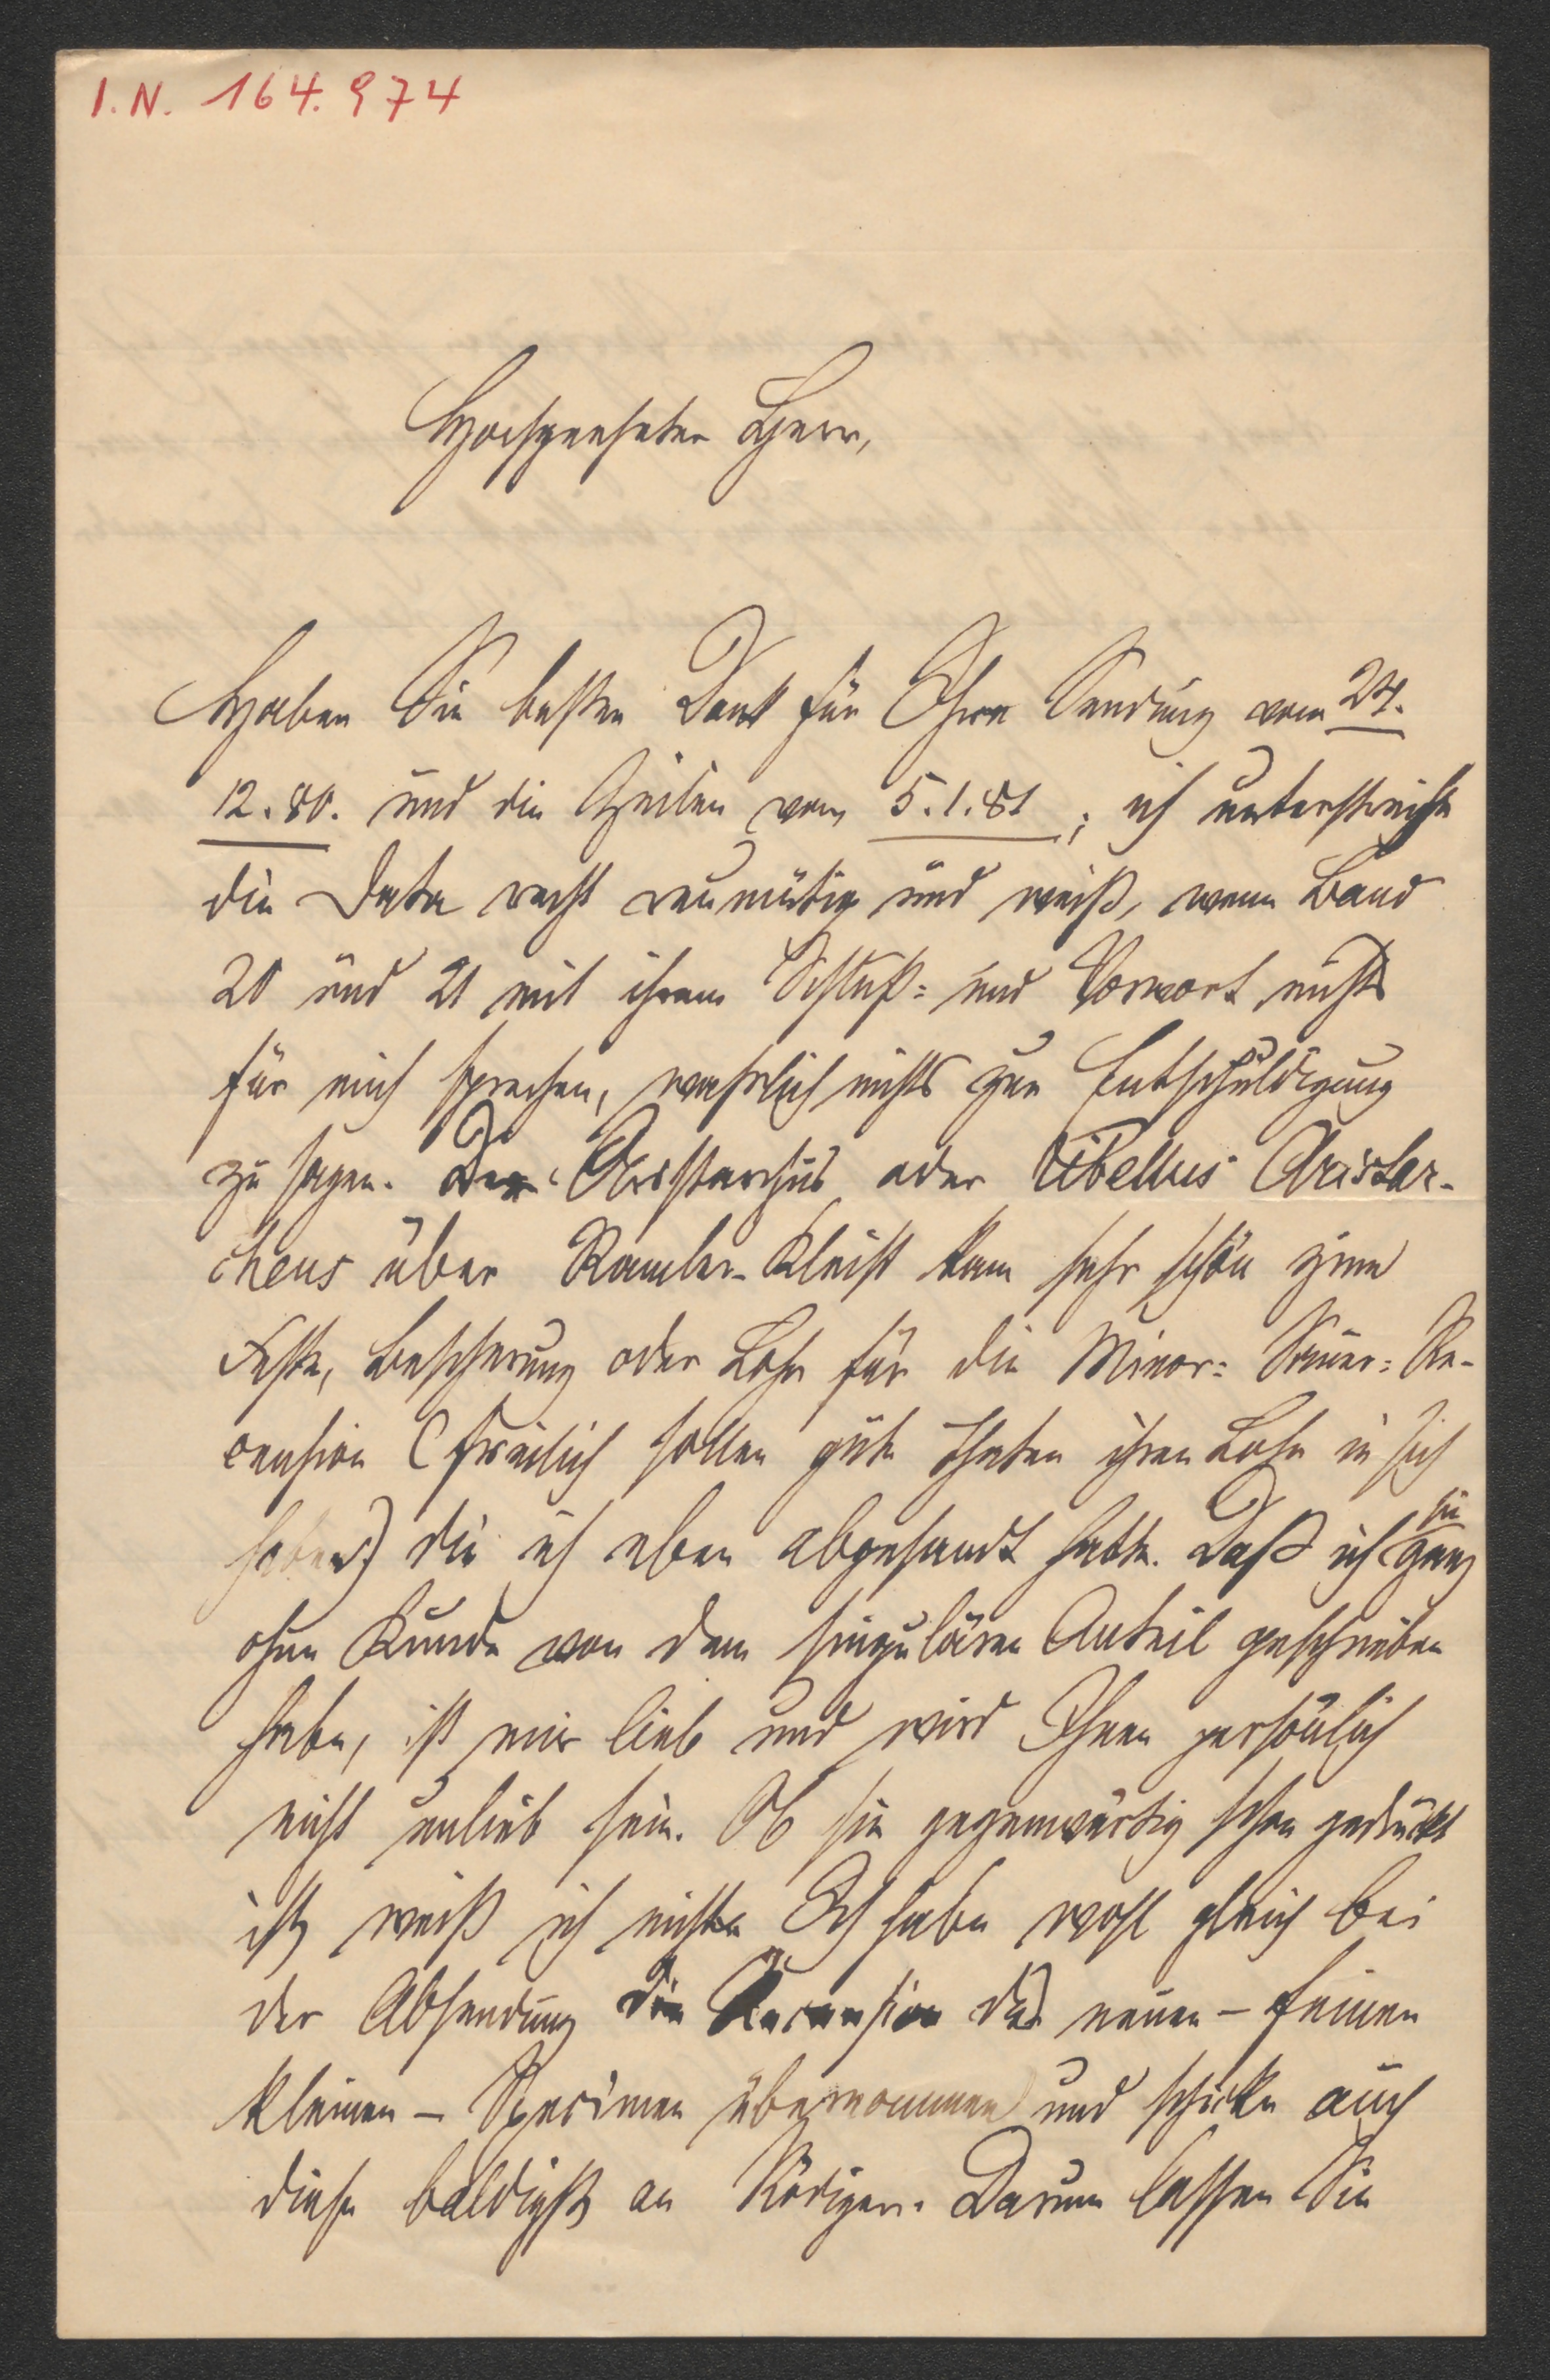 I. N. 164.974
Hochgeehrter Herr,
Haben Sie besten Dank für Ihre Sendung vom 24.
12.80. und die Zeilen vom 5.1.81; ich unterstreiche
die Data recht reumütig und weiß, wenn Band
20 und 21 mit ihrem Schluß= und Vorwort nichts
für mich sprechen, wahrlich nichts zur Entschuldigung
zu sagen. Der Aristarchus oder libellus Aristar-
cheus über Ramler-Kleist kam sehr schön zum
Feste, Bescherung oder Lohn für die Minor= Sauer= Re-
cension (freilich sollen gute Thaten ihren Lohn in sich
haben) die ich eben abgesandt hatte. Daß ich sie ganz
ohne Kunde von dem singulären Anteil geschrieben
habe, ist mir lieb und wird Ihnen persönlich
nicht unlieb sein. Ob sie gegenwärtig schon gedruckt
ist, weiß ich nicht. Ich habe wohl gleich bei
der Absendung die Recension des neuen – feinen
kleinen – Specimen übernommen und schicke auch
diese baldigst an Rödiger. Darum lassen Sie